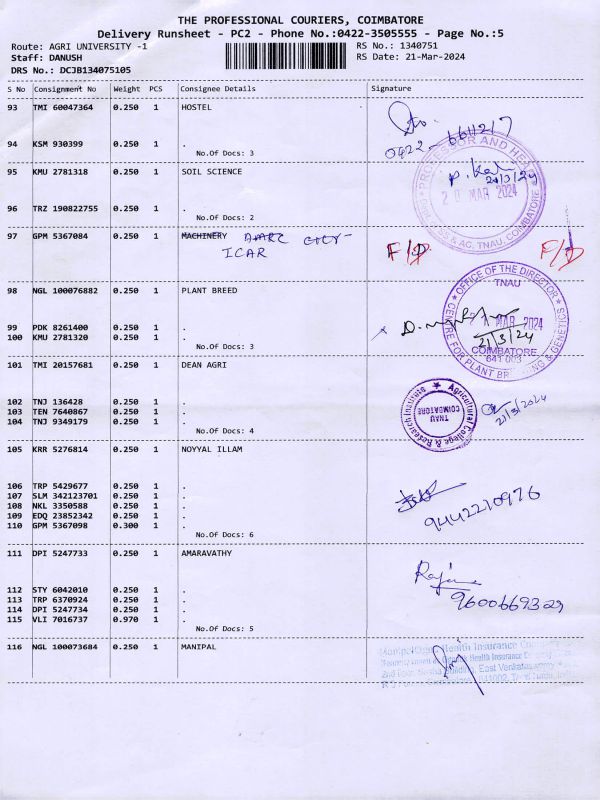 THE PROFESSIONAL COURIERS, COIMBATORE
Delivery Runsheet - PC2 - Phone No.:0422-3505555 - Page No.:5
Route: AGRI UNIVERSITY -1 RS No.: 1340751
Staff: DANUSH RS Date: 21-Mar-2024
DRS No.: DCJB134075105
S No Consignment No Weight PCS Consignee Details Signature
93 TMI 60047364 0.250 1 HOSTEL
0422-6611217
94 KSM 930399 0.250 1 .
No.Of Docs: 3
95 KMU 2781318 0.250 1 SOIL SCIENCE
PROFESSOR AND HEAD
21/3/24
20 MAR 2024
SS & AC, TNAU, COIMBATORE
96 TRZ 190822755 0.250 1 .
No.Of Docs: 2
97 GPM 5367084 0.250 1 MACHINERY
ICAR
F/D F/D
98 NGL 100076882 0.250 1 PLANT BREED
OFFICE OF THE DIRECTOR
TNAU
MAR 2024
21/3/24
COIMBATORE
641 003
CENTRE FOR PLANT BREEDING & GENETICS
99 PDK 8261400 0.250 1 .
100 KMU 2781320 0.250 1 .
No.Of Docs: 3
101 TMI 20157681 0.250 1 DEAN AGRI
Agricultural College & Research Institute
TNAU
COIMBATORE
21/3/2024
102 TNJ 136428 0.250 1 .
103 TEN 7640867 0.250 1 .
104 TNJ 9349179 0.250 1 .
No.Of Docs: 4
105 KRR 5276814 0.250 1 NOYYAL ILLAM
106 TRP 5429677 0.250 1 .
107 SLM 342123701 0.250 1 .
108 NKL 3350588 0.250 1 .
109 EDQ 23852342 0.250 1 .
110 GPM 5367098 0.300 1 .
9442210976
No.Of Docs: 6
111 DPI 5247733 0.250 1 AMARAVATHY
112 STY 6042010 0.250 1 .
113 TRP 6370924 0.250 1 .
114 DPI 5247734 0.250 1 .
115 VLI 7016737 0.970 1 .
9600669329
No.Of Docs: 5
116 NGL 100073684 0.250 1 MANIPAL
Health Insurance
Health Insurance
East Venkatasamy